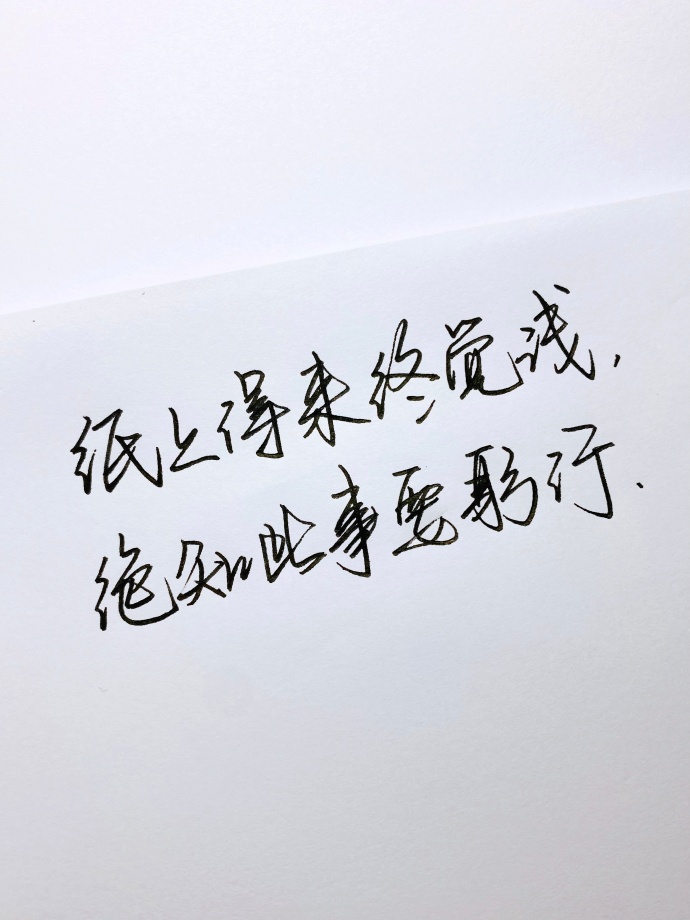 纸上得来终觉浅，
绝知此事要躬行.